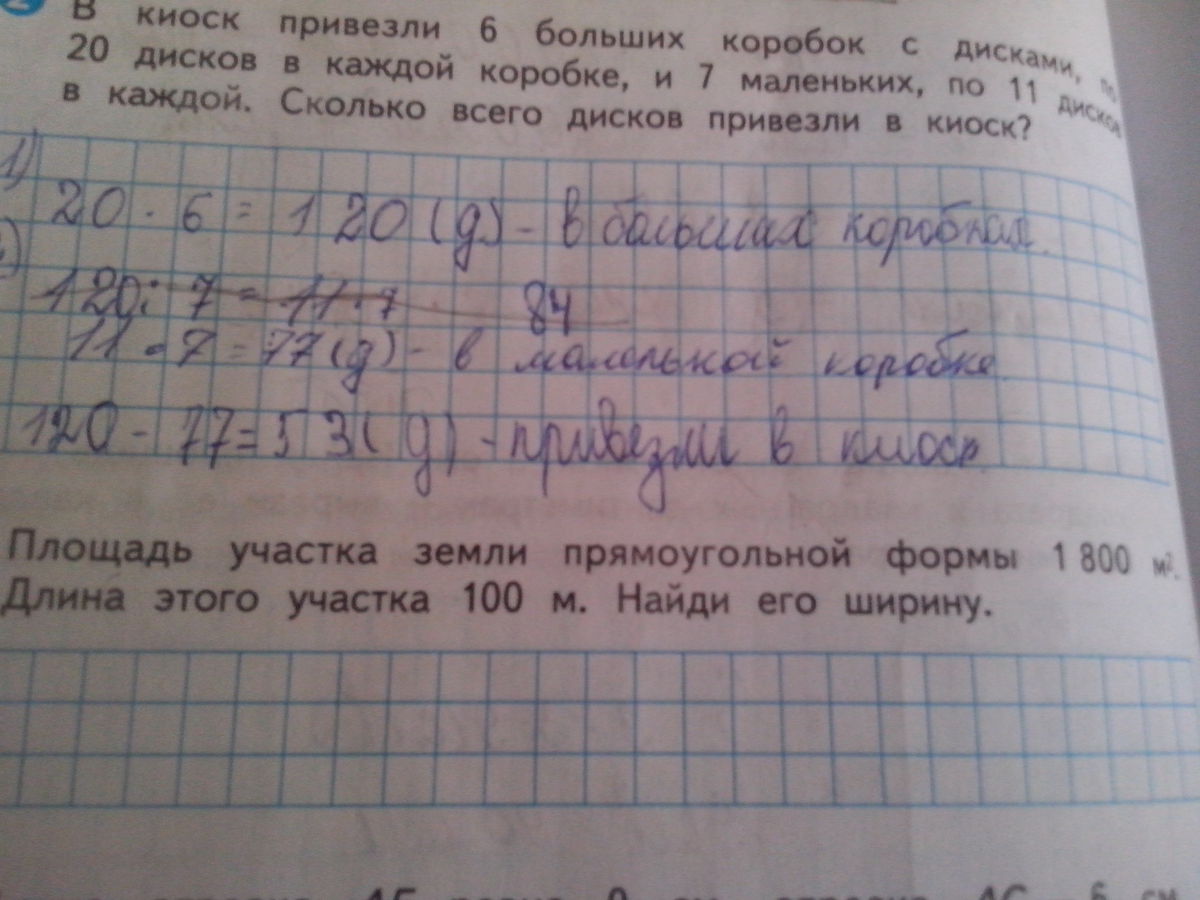 2 В киоск привезли 6 больших коробок с дисками, по
20 дисков в каждой коробке, и 7 маленьких, по 11 дисков
в каждой. Сколько всего дисков привезли в киоск?
1)
20 · 6 = 120 (д) - в больших коробках
120 : 7 = 11 · 7 84
11 · 7 = 77 (д) - в маленькой коробке
120 - 77 = 53 (д) - привезли в киоск
Площадь участка земли прямоугольной формы 1 800 м².
Длина этого участка 100 м. Найди его ширину.